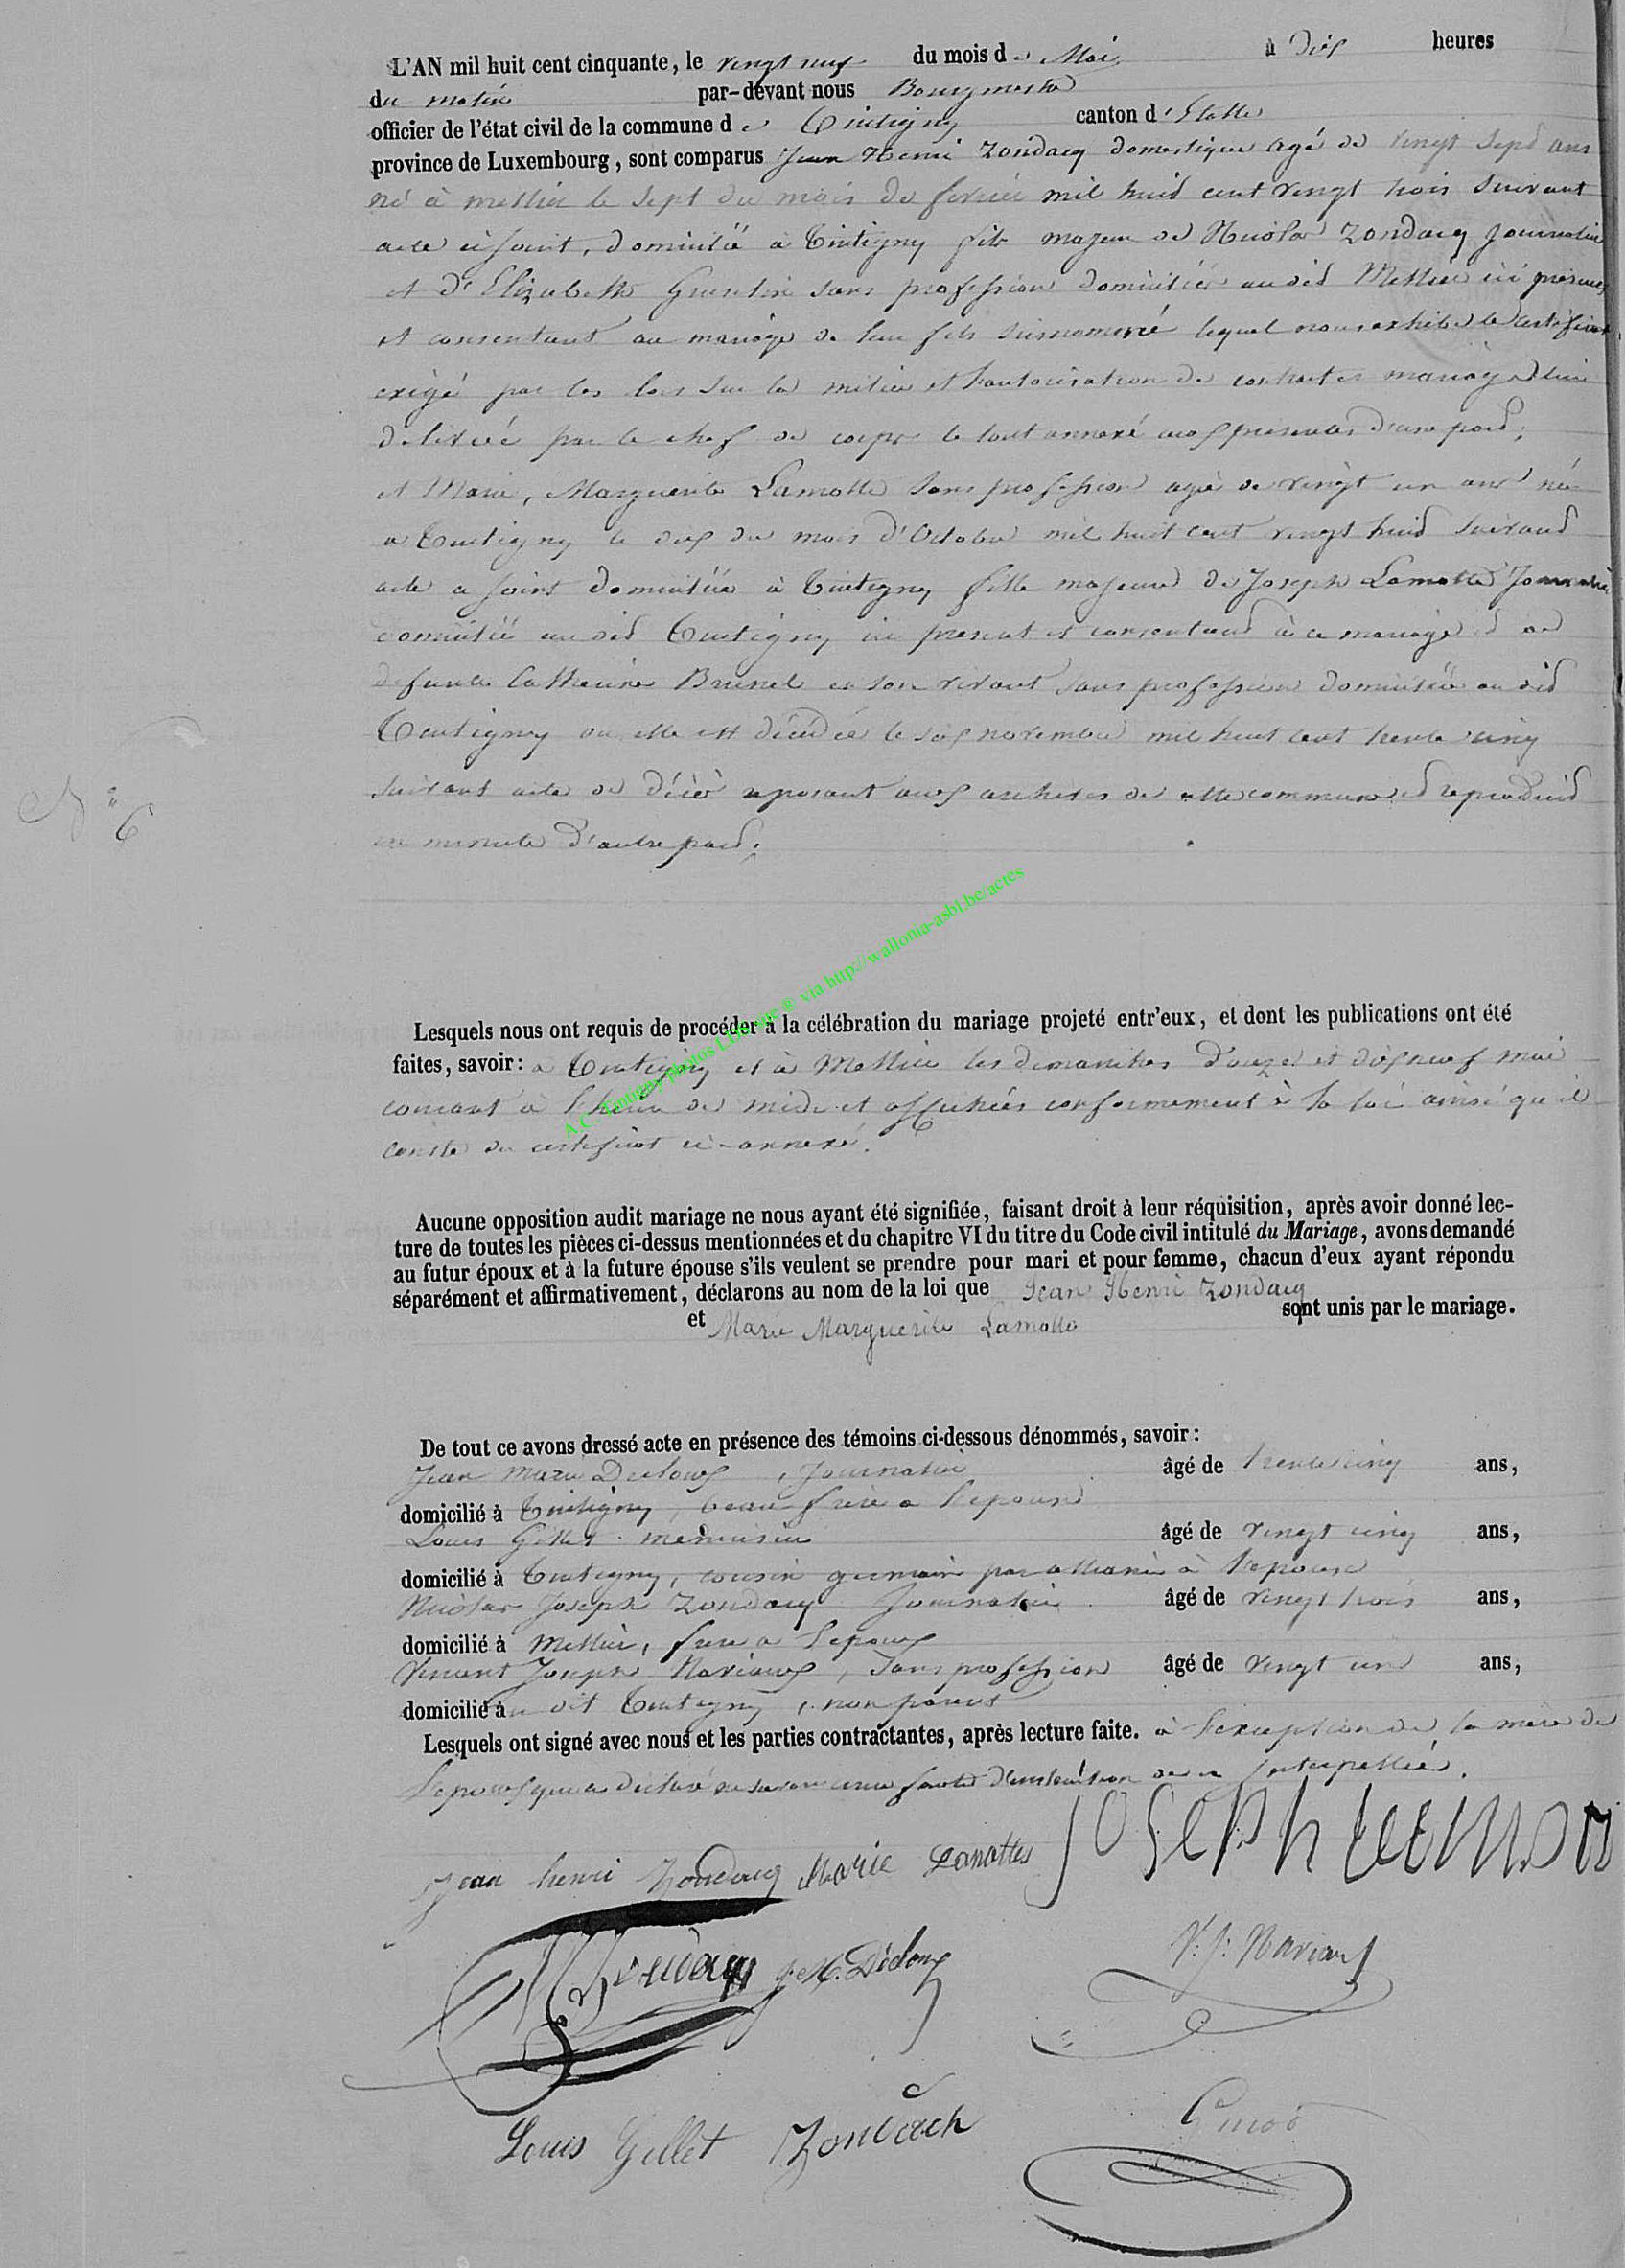 L'AN mil huit cent cinquante, le vingt neuf du mois de Mai à dix heures
du matin par-devant nous Bourgmestre
officier de l'état civil de la commune de Tintigny canton d'Etalle
province de Luxembourg, sont comparus Jean Henri Zondacq domestique agé de vingt sept ans
né à mellier le sept du mois de fevrier mil huit cent vingt trois suivant
acte ci joint, domicilié à Tintigny fils majeur de Nicolas Zondacq journalier
et d'Elizabeth sans profession domiciliés au dit Mellier ici présens
et consentant au mariage de leur fils surnommé lequel nous exhibe le certificat
exigé par les lois sur la milice et l'autorisation de contracter mariage lui
delivrée par le chef de corps le tout annexé aux présentes d'une part;
et Marie, Marguerite Lamotte sans profession agée de vingt un ans née
a Tintigny le dix du mois d'Octobre mil huit cent vingt huit suivant
acte ci joint domiciliée à Tintigny fille majeure de Joseph Lamotte Journalier
domicilié au dit Tintigny ici present et consentant à ce mariage et de
defunte Catherine Brunel en son vivant sans profession domiciliée au dit
Tintigny ou elle est décédée le six novembre mil huit cent trente cinq
suivant acte de décès reposant aux archives de cette commune et reproduit
en minute d'autre part.
N° 6
Lesquels nous ont requis de procéder à la célébration du mariage projeté entr'eux, et dont les publications ont été
faites, savoir: a Tintigny et à Mellier les dimanches douze et dix neuf mai
courant à l'heure de midi et affichées conformement à la loi ainsi qu'il
conste du certificat ci-annexé.
Aucune opposition audit mariage ne nous ayant été signifiée, faisant droit à leur réquisition, après avoir donné lec-
ture de toutes les pièces ci-dessus mentionnées et du chapitre VI du titre du Code civil intitulé du Mariage, avons demandé
au futur époux et à la future épouse s'ils veulent se prendre pour mari et pour femme, chacun d'eux ayant répondu
séparément et affirmativement, déclarons au nom de la loi que Jean Henri Zondacq
et Marie Marguerite Lamotte sont unis par le mariage.
De tout ce avons dressé acte en présence des témoins ci-dessous dénommés, savoir:
Jean Marie Decloux, Journalier âgé de trente cinq ans,
domicilié à Tintigny, beau frère a l'epouse
Louis Gillet menuisier âgé de vingt cinq ans,
domicilié à Tintigny, cousin germain par alliance à l'epouse
Nicolas Joseph Zondacq Journalier âgé de vingt trois ans,
domicilié à Mellier, frere a l'epoux
Vincent Joseph Mariaux, sans profession âgé de vingt un ans,
domicilié au dit Tintigny, non parent
Lesquels ont signé avec nous et les parties contractantes, après lecture faite. à l'exception de la mere de
l'epoux qui a déclaré ne savoir faute d'instruction de ce Interpellée.
Jean henri Zondacq Marie Lamottes Joseph
Zondacq J. M. Décloux V: J: Mariaux
Louis Gillet Zondach
A.C. Tintigny photos via http://wallonia-asbl.be/actes